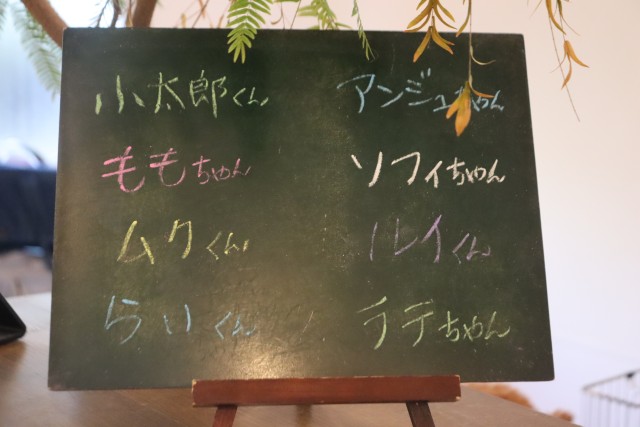 小太郎くん
アンジュちゃん
ももちゃん
ソフィちゃん
ムクくん
ルイくん
らいくん
ラテちゃん